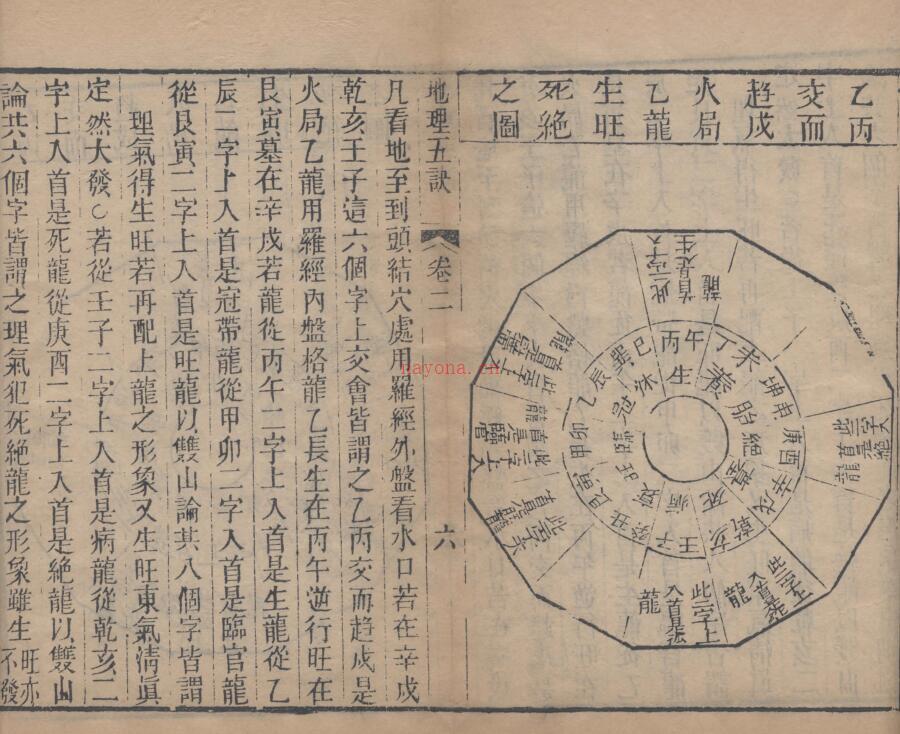 乙丙
交而
趨戌
火局
乙龍
生旺
死絕
之圖
此二字入
首是生
龍
丙午
丁未
坤申
庚酉
辛戌
乾亥
壬子
癸丑
艮寅
甲卯
乙辰
巽巳
生
養
胎
絕
墓
死
病
衰
旺
臨
冠
沐
此二字上
入首是死
龍
此二字上
入首是病
龍
地理五訣 卷二 六
凡看地至到頭結穴處用羅經外盤看水口若在辛戌
乾亥壬子這六個字上交會皆謂之乙丙交而趨戌是
火局乙龍用羅經內盤格龍乙長生在丙午逆行旺在
艮寅墓在辛戌若龍從丙午二字上入首是生龍從乙
辰二字上入首是冠帶龍從甲卯二字入首是臨官龍
從艮寅二字上入首是旺龍以雙山論其八個字皆謂
理氣得生旺若再配上龍之形象又生旺東氣清眞
定然大發若從壬子二字上入首是病龍從乾亥二
字上入首是死龍從庚酉二字上入首是絕龍以雙山
論共六個字皆謂之理氣犯死絕龍之形象雖生旺亦不發
nayona.cn